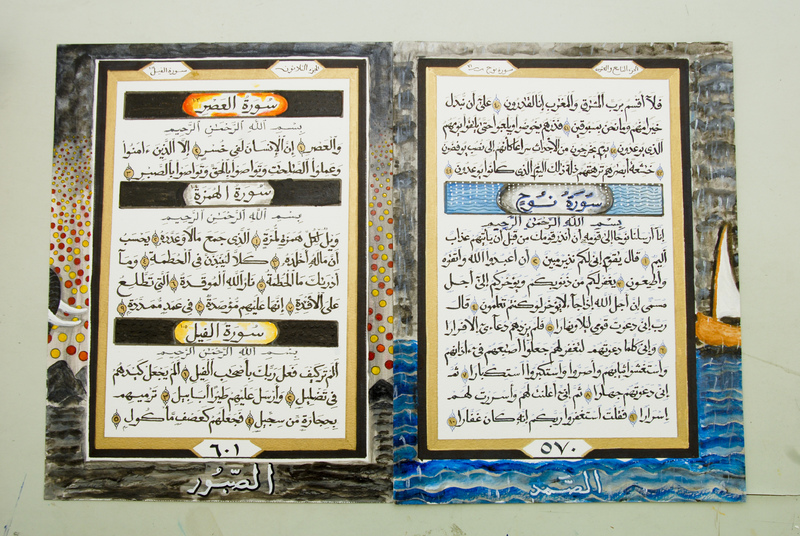 الجزء التاسع والعشرون
سورة نوح
فلا أقسم برب المشرق والمغرب إنا لقدرون على أن نبدل
خيرا منهم وما نحن بمسبوقين فذرهم يخوضوا ويلعبوا حتى يلقوا يومهم
الذي يوعدون يوم يخرجون من الأجداث سراعا كأنهم إلى نصب يوفضون
خشعة أبصرهم ترهقهم ذلة ذلك اليوم الذي كانوا يوعدون
سورة نوح
بسم الله الرحمن الرحيم
إنا أرسلنا نوحا إلى قومه أن أنذر قومك من قبل أن يأتيهم عذاب
أليم قال يقوم إني لكم نذير مبين أن اعبدوا الله واتقوه
وأطيعون يغفر لكم من ذنوبكم ويؤخركم إلى أجل
مسمى إن أجل الله إذا جاء لا يؤخر لو كنتم تعلمون قال
رب إني دعوت قومي ليلا ونهارا فلم يزدهم دعاءي إلا فرارا
وإني كلما دعوتهم لتغفر لهم جعلوا أصبعهم في ءاذانهم
واستغشوا ثيابهم وأصروا واستكبروا استكبارا ثم
إني دعوتهم جهارا ثم إني أعلنت لهم وأسررت لهم
إسرارا فقلت استغفروا ربكم إنه كان غفارا
٥٧٠
الصمد
الجزء الثلاثون
سورة الفيل
سورة العصر
بسم الله الرحمن الرحيم
والعصر إن الإنسان لفي خسر إلا الذين ءامنوا
وعملوا الصلحت وتواصوا بالحق وتواصوا بالصبر
سورة الهمزة
بسم الله الرحمن الرحيم
ويل لكل همزة لمزة الذي جمع مالا وعدده يحسب
أن ماله أخلده كلا لينبذن في الحطمة وما
أدريك ما الحطمة نار الله الموقدة التي تطلع
على الأفدة إنها عليهم مؤصدة في عمد ممددة
سورة الفيل
بسم الله الرحمن الرحيم
ألم تر كيف فعل ربك بأصحب الفيل ألم يجعل كيدهم
في تضليل وأرسل عليهم طيرا أبابيل ترميهم
بحجارة من سجيل فجعلهم كعصف مأكول
٦٠١
الصبور